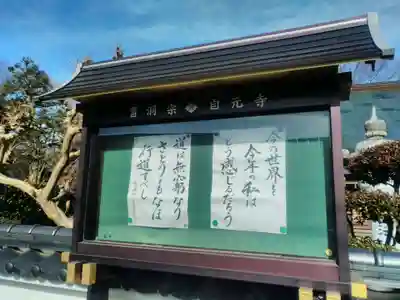 曹洞宗 自元寺
今の世界を
今年の私は
どう感じるだろう
道は無窮なり
さとりてもなほ
行道すべし